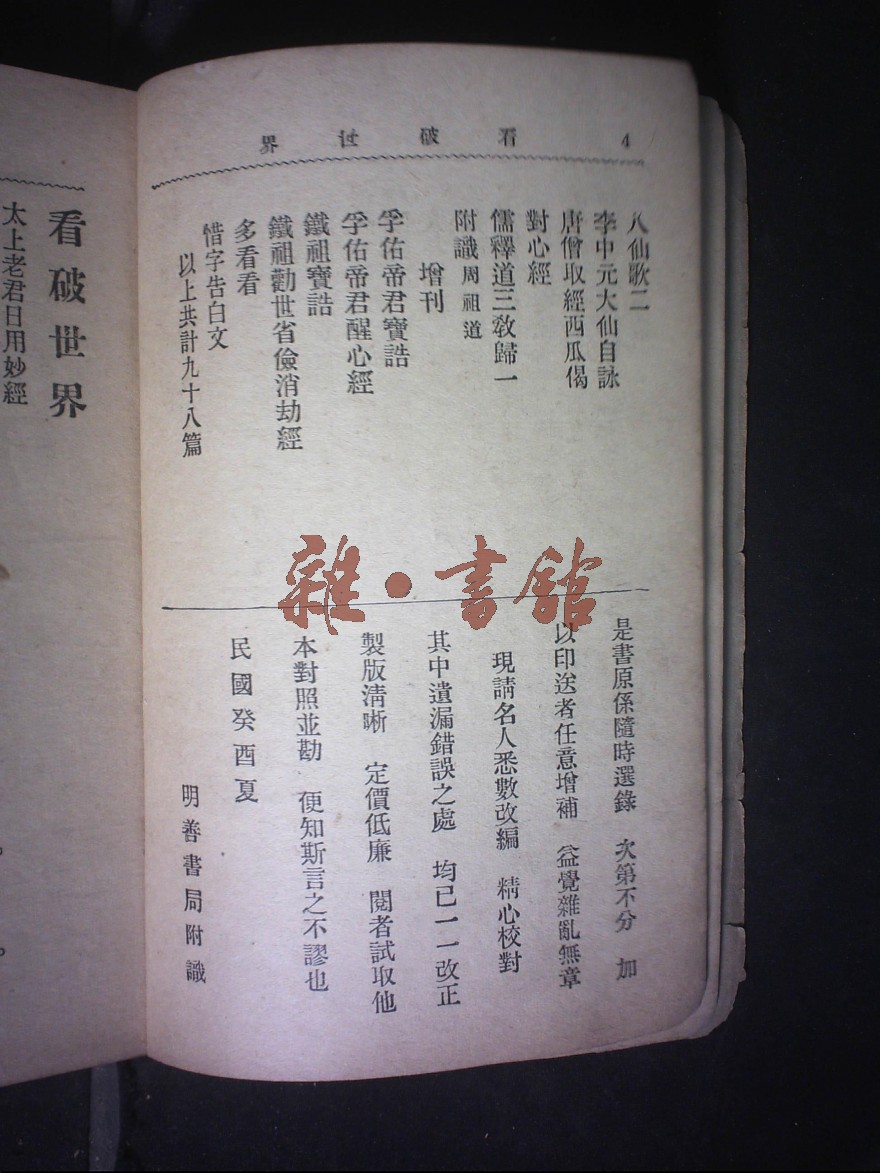 看破世界 4
八仙歌二
李中元大仙自詠
唐僧取經西瓜偈
對心經
儒釋道三敎歸一
附識周祖道
增刊
孚佑帝君寶誥
孚佑帝君醒心經
鐵祖寶誥
鐵祖勸世省儉消劫經
多看看
惜字告白文
以上共計九十八篇
是書原係隨時選錄 次第不分 加
以印送者任意增補 益覺雜亂無章
現請名人悉數改編 精心校對
其中遺漏錯誤之處 均已一一改正
製版淸晰 定價低廉 閱者試取他
本對照並勘 便知斯言之不謬也
民國癸酉夏
明善書局附識
看破世界
太上老君日用妙經
雜·書館